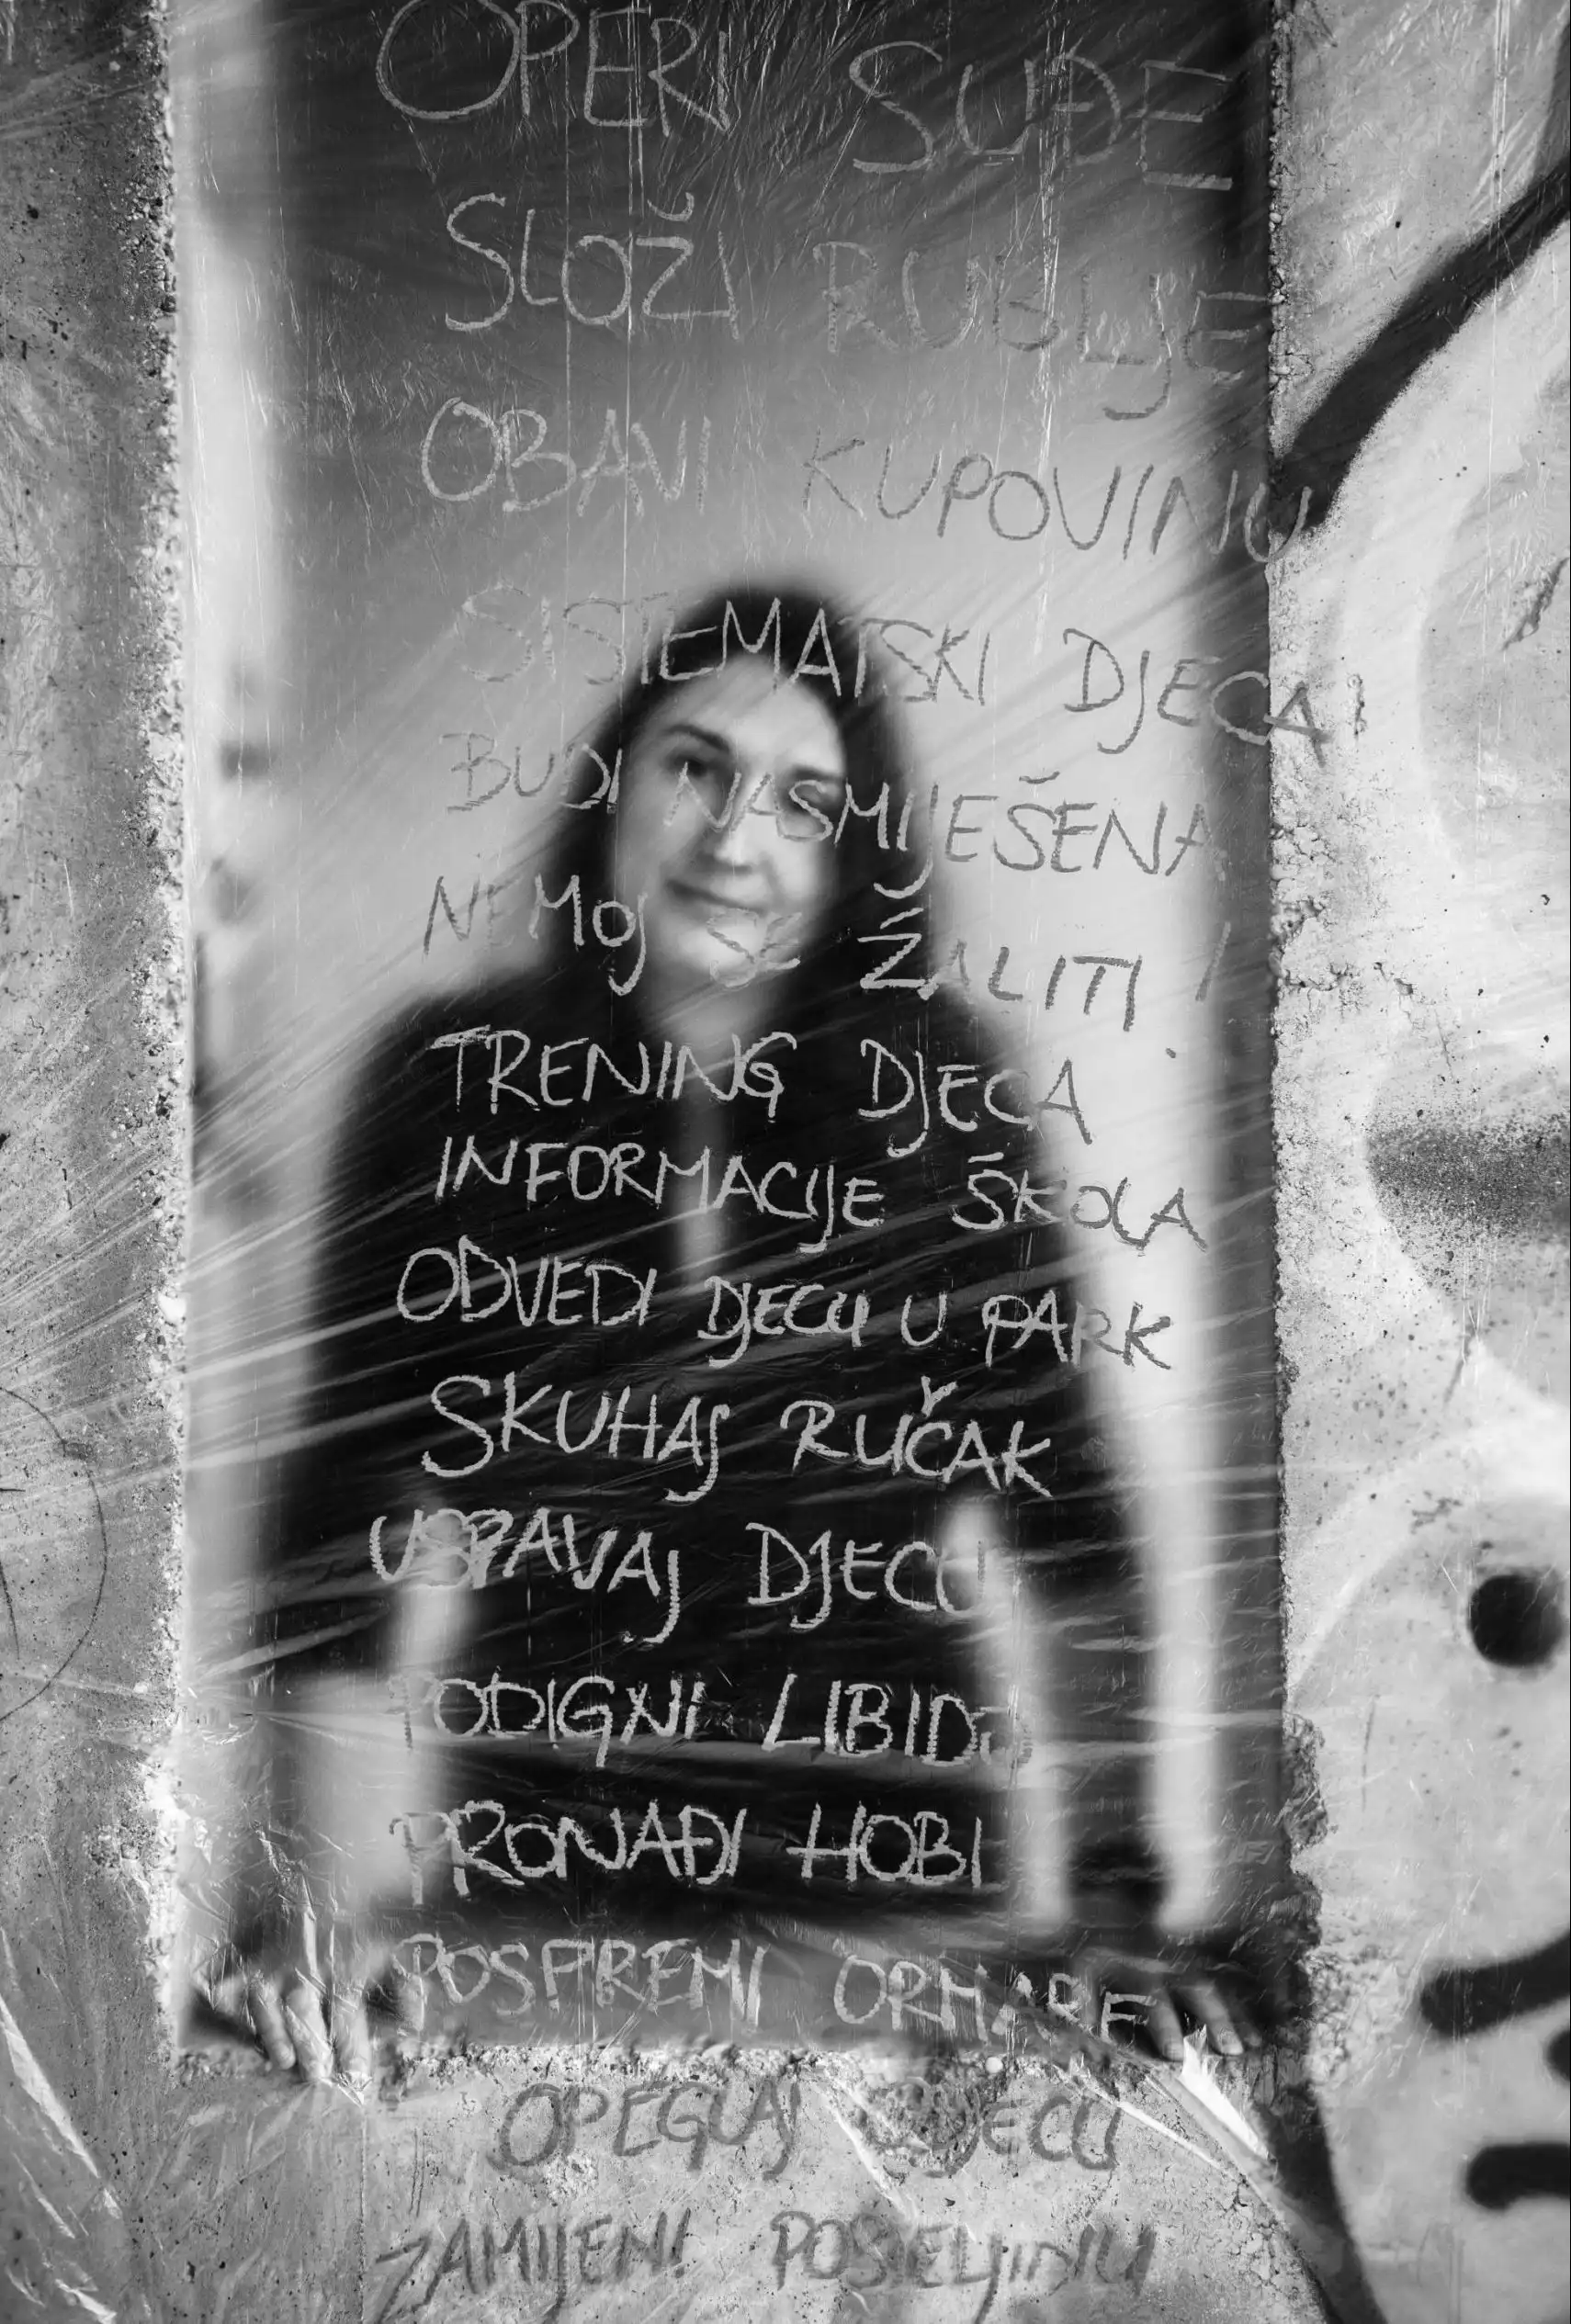 OPERI SUĐE
SLOŽI RUBLJE
OBAVI KUPOVINU
SISTEMATSKI DJECA!
BUDI NASMIJEŠENA
NEMOJ SE ŽALITI!
TRENING DJECA
INFORMACIJE ŠKOLA
ODVEDI DJECU U PARK
SKUHAJ RUČAK
USPAVAJ DJECU
PODIGNI LIBIDO
PRONAĐI HOBI
POSPREMI ORMARE
OPEGLAJ
ZAMIJENI POSTELJINU